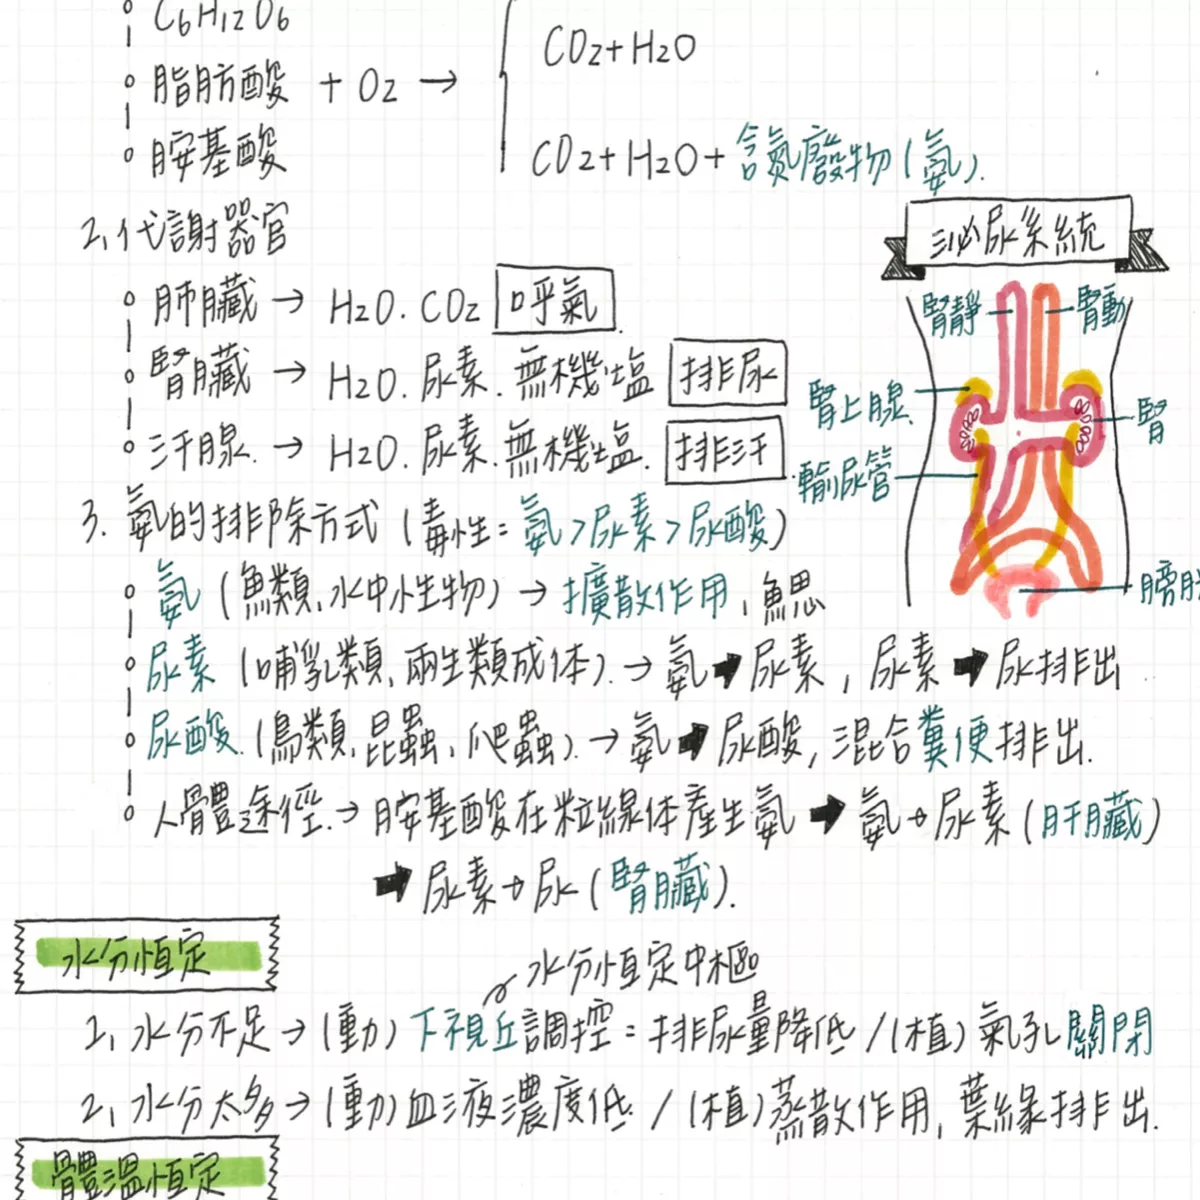 C6H12O6
CO2+H2O
脂肪酸 + O2 →
胺基酸
CO2+H2O+含氮廢物(氨).
2. 代謝器官
肺臟 → H2O. CO2 呼氣
腎臟 → H2O. 尿素. 無機塩 排尿
汗腺. → H2O. 尿素. 無機塩. 排汗
泌尿系統
腎靜
腎動
腎上腺
腎
輸尿管
膀胱
3. 氨的排除方式 (毒性: 氨>尿素>尿酸)
氨 (魚類、水中小生物) → 擴散作用、鰓
尿素 (哺乳類、兩生類成体). → 氨➡尿素, 尿素➡尿排出
尿酸. (鳥類、昆蟲、爬蟲). → 氨➡尿酸, 混合糞便排出.
人體途徑. → 胺基酸在粒線体產生氨 ➡ 氨→尿素 (肝臟)
➡ 尿素→尿 (腎臟).
水分恆定
水分恆定中樞
1. 水分不足 → (動) 下視丘調控=排尿量降低 / (植) 氣孔關閉
2. 水分太多 → (動) 血液濃度低. / (植) 蒸散作用, 葉緣排出.
體溫恆定